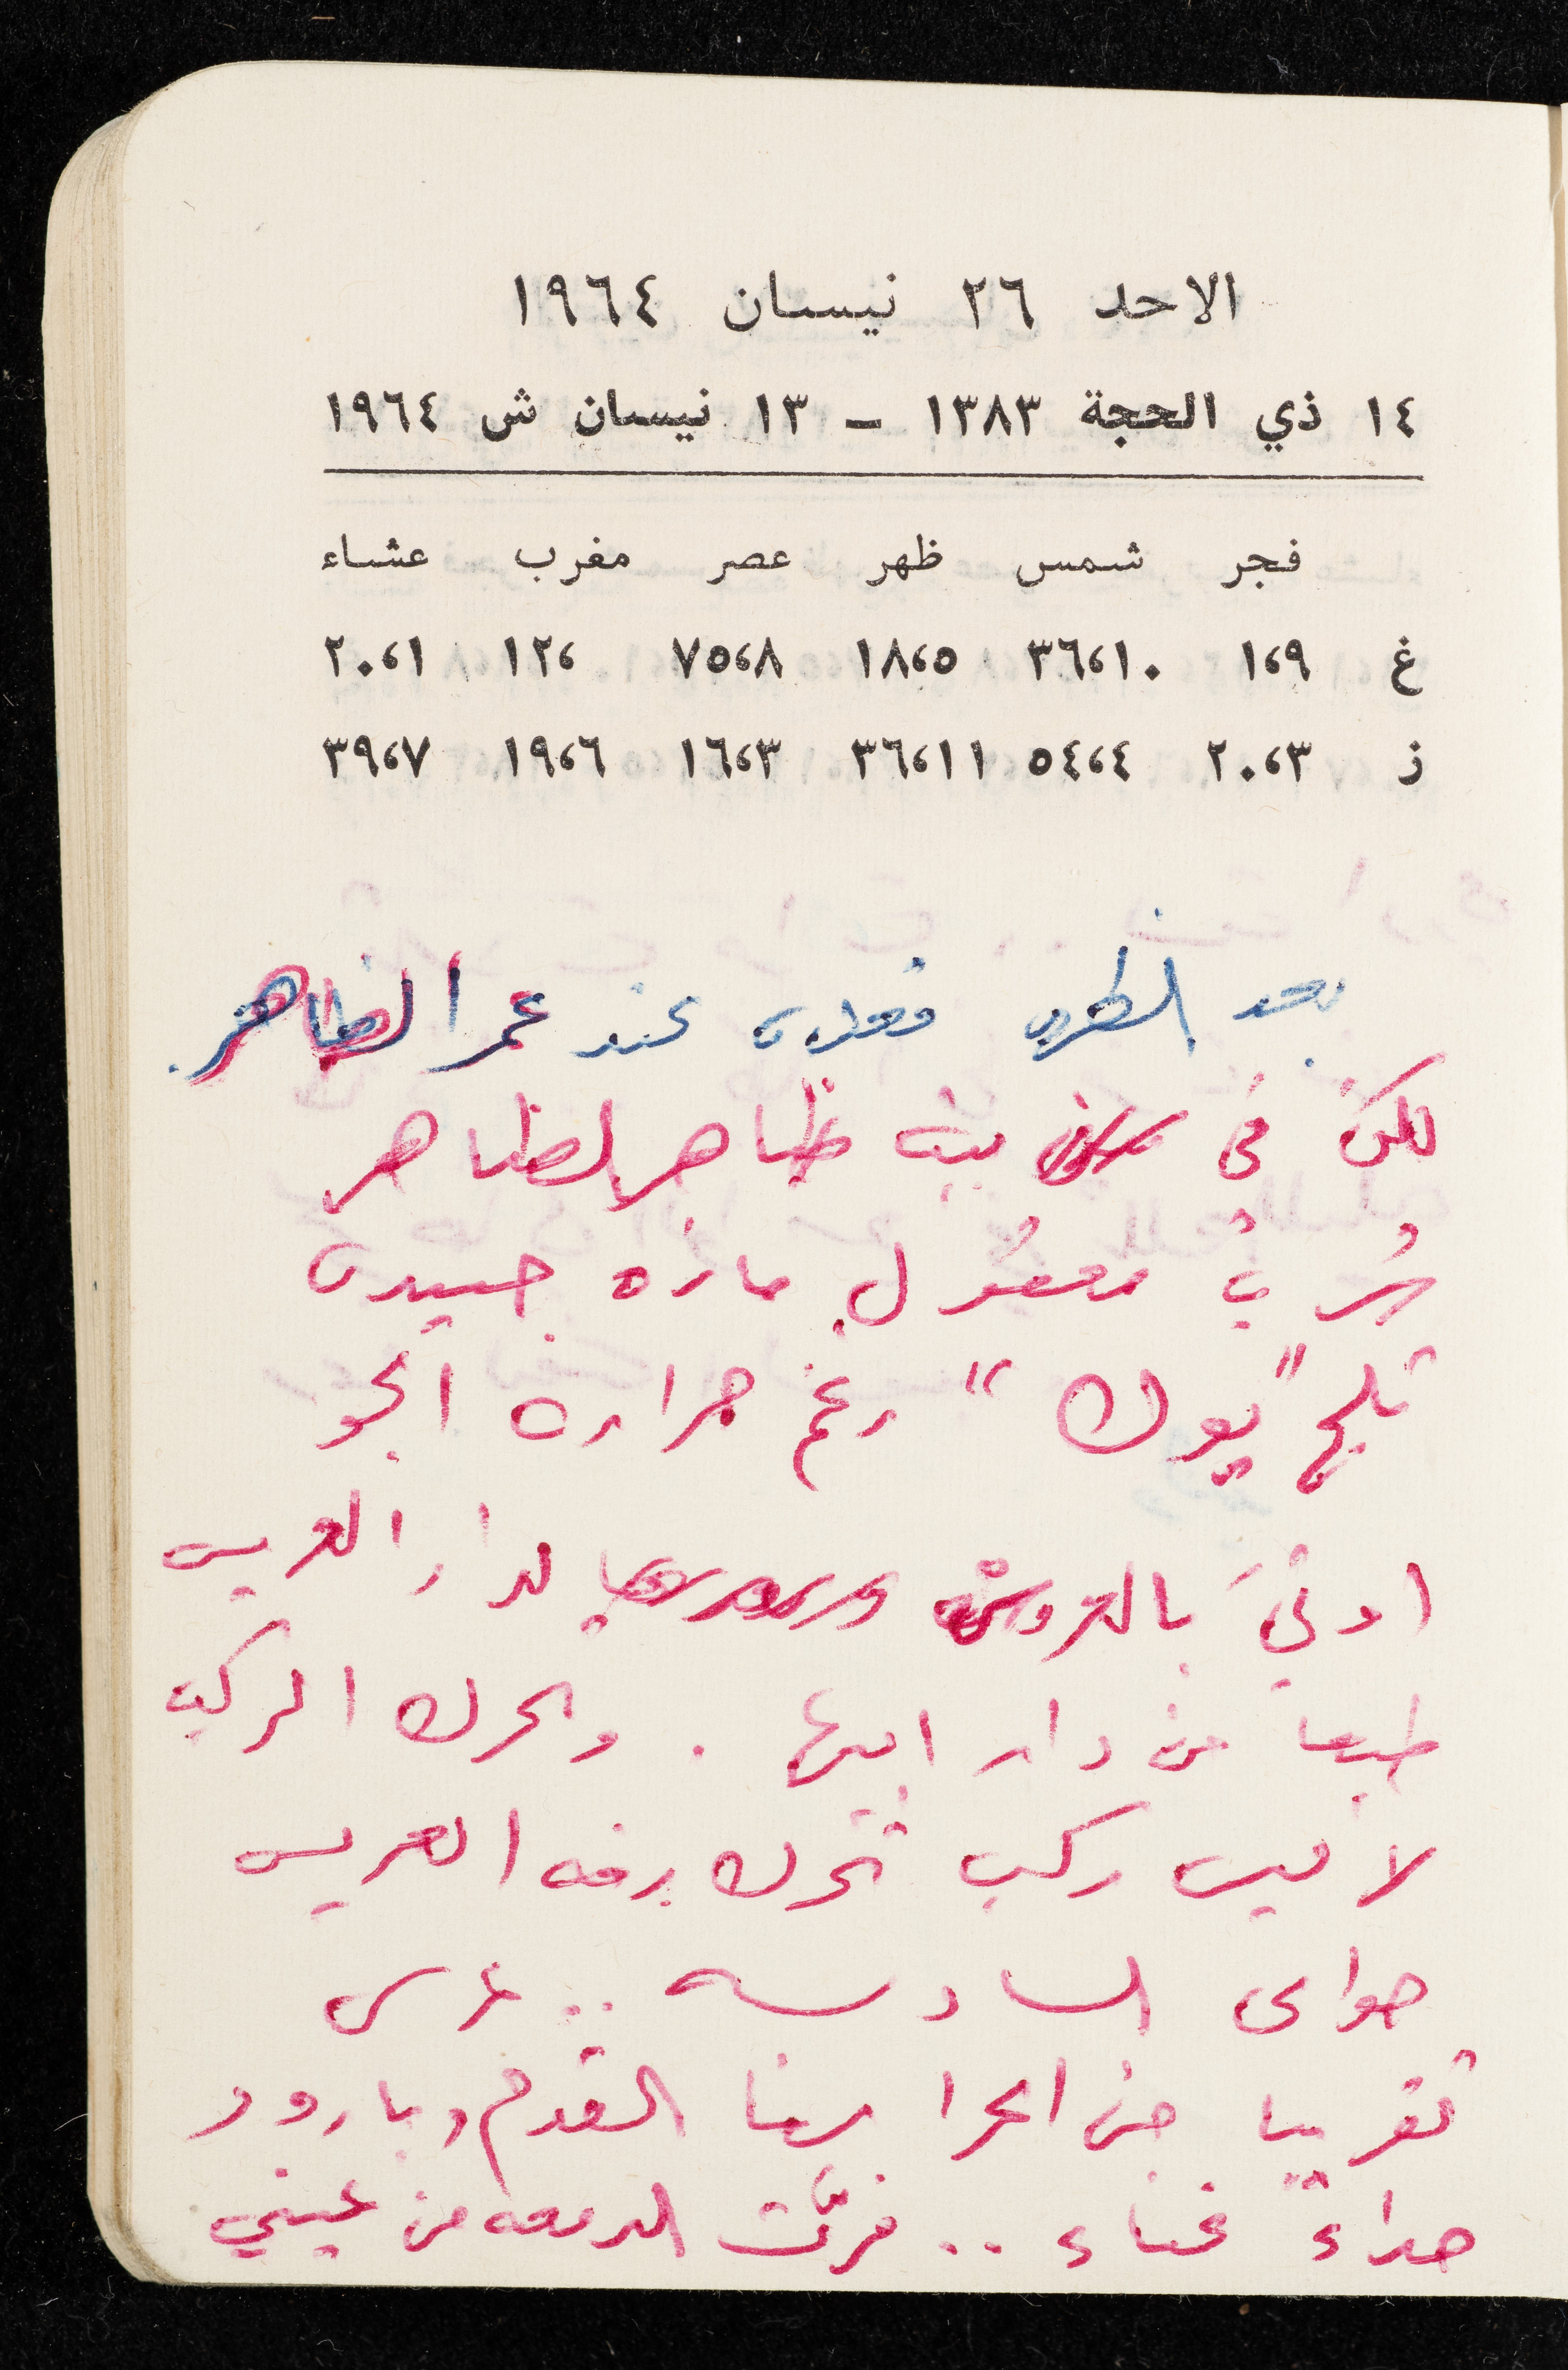 الاحد ٢٦ نيسان ١٩٦٤
١٤ ذي الحجة ١٣٨٣ ـ ١٣ نيسان ش ١٩٦٤
فجر شمس ظهر عصر مغرب عشاء
غ ١،٩ ٣٦،١٠ ١٨،٥ ٧٥،٨ ١٢، ٢٠،١
ز ٢٠،٣ ٥٤،٤ ٣٦،١١ ١٦،٣ ١٩،٦ ٣٩،٧
بعد الظهر عند عمر الظاهر.
لكن في بيت ظاهر الظاهر
شربٌ معقول مازه
ثلج "يوك" رغم حرارة الجو
اوتيَ بالعروس لدار العريس
طبعا من دار ابيها . وتحرك الركب
لا ليس ركب تحرك زفة العريس
حوالى السادسه .. عرس
تقريبا من القدم وبارود
حداءٌ غناء .. فرّت الدمعه من عيني